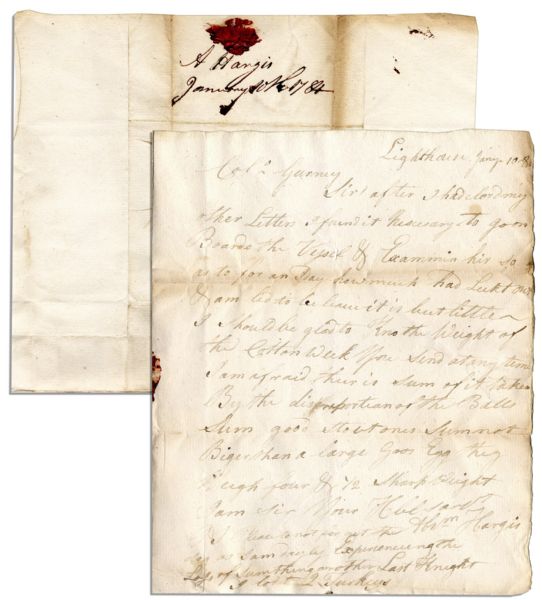 A Hargis
January 10th 1784
Lighthouse Jany. 10 84
Col.o Gurney
Sir after I had clord my
other Letter I fund it Necesary to go on
Board the Vesel & Examin his
as to for an Day how much had Leekt out
& am led to be leave it is but little
I should be glad to Kno the Weight of
the Cotton Week You Send at any time
I am afraid their is Sum of it taken
By the disproportian of the Balls
Sum good Stout ones Sum not
Biger than a large Goos Egg they
Weigh four & 1/2 Sharp Weight
I am Sir Your Hbl Sart
Abrm Hargis
not for get the
dog as I am dayly Experienceing the
Loss of Sum thing another Last Knight
I lost 2 Turkeys